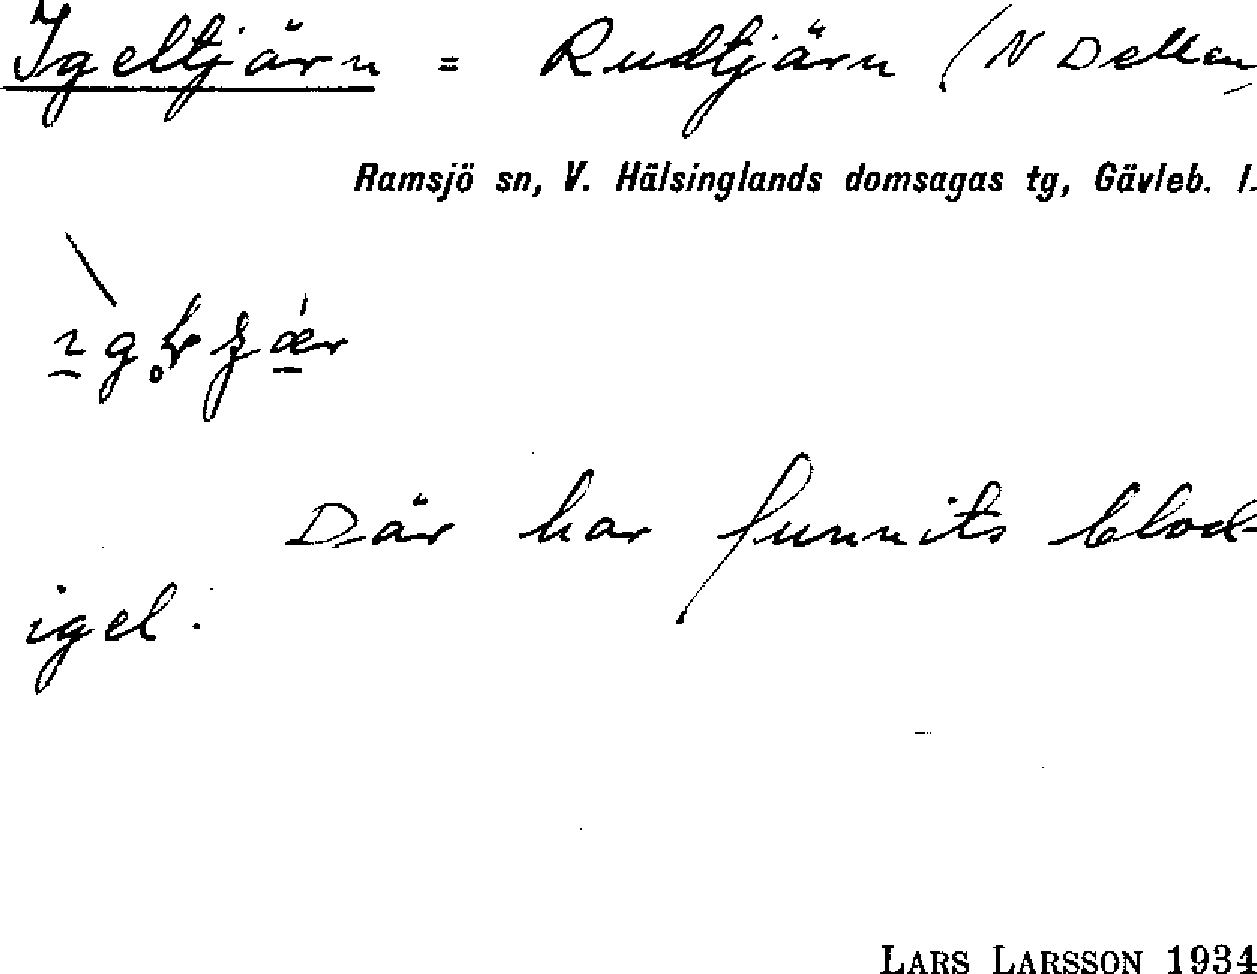 Igeltjärn = Rudtjärn (N Dellen)
Ramsjö sn, V. Hälsinglands domsagas tg, Gävleb. l.
Där har funnits blod-
igel.
LARS LARSSON 1934